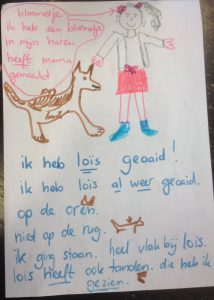 bloemetje
ik heb een bloemetje
in mijn haren.
heeft mama
gemaakt
ik heb loïs geaaid!
ik heb loïs al weer geaaid.
op de oren.
niet op de rug.
ik ging staan. heel vlak bij loïs.
loïs heeft ook tanden. die heb ik
gezien.